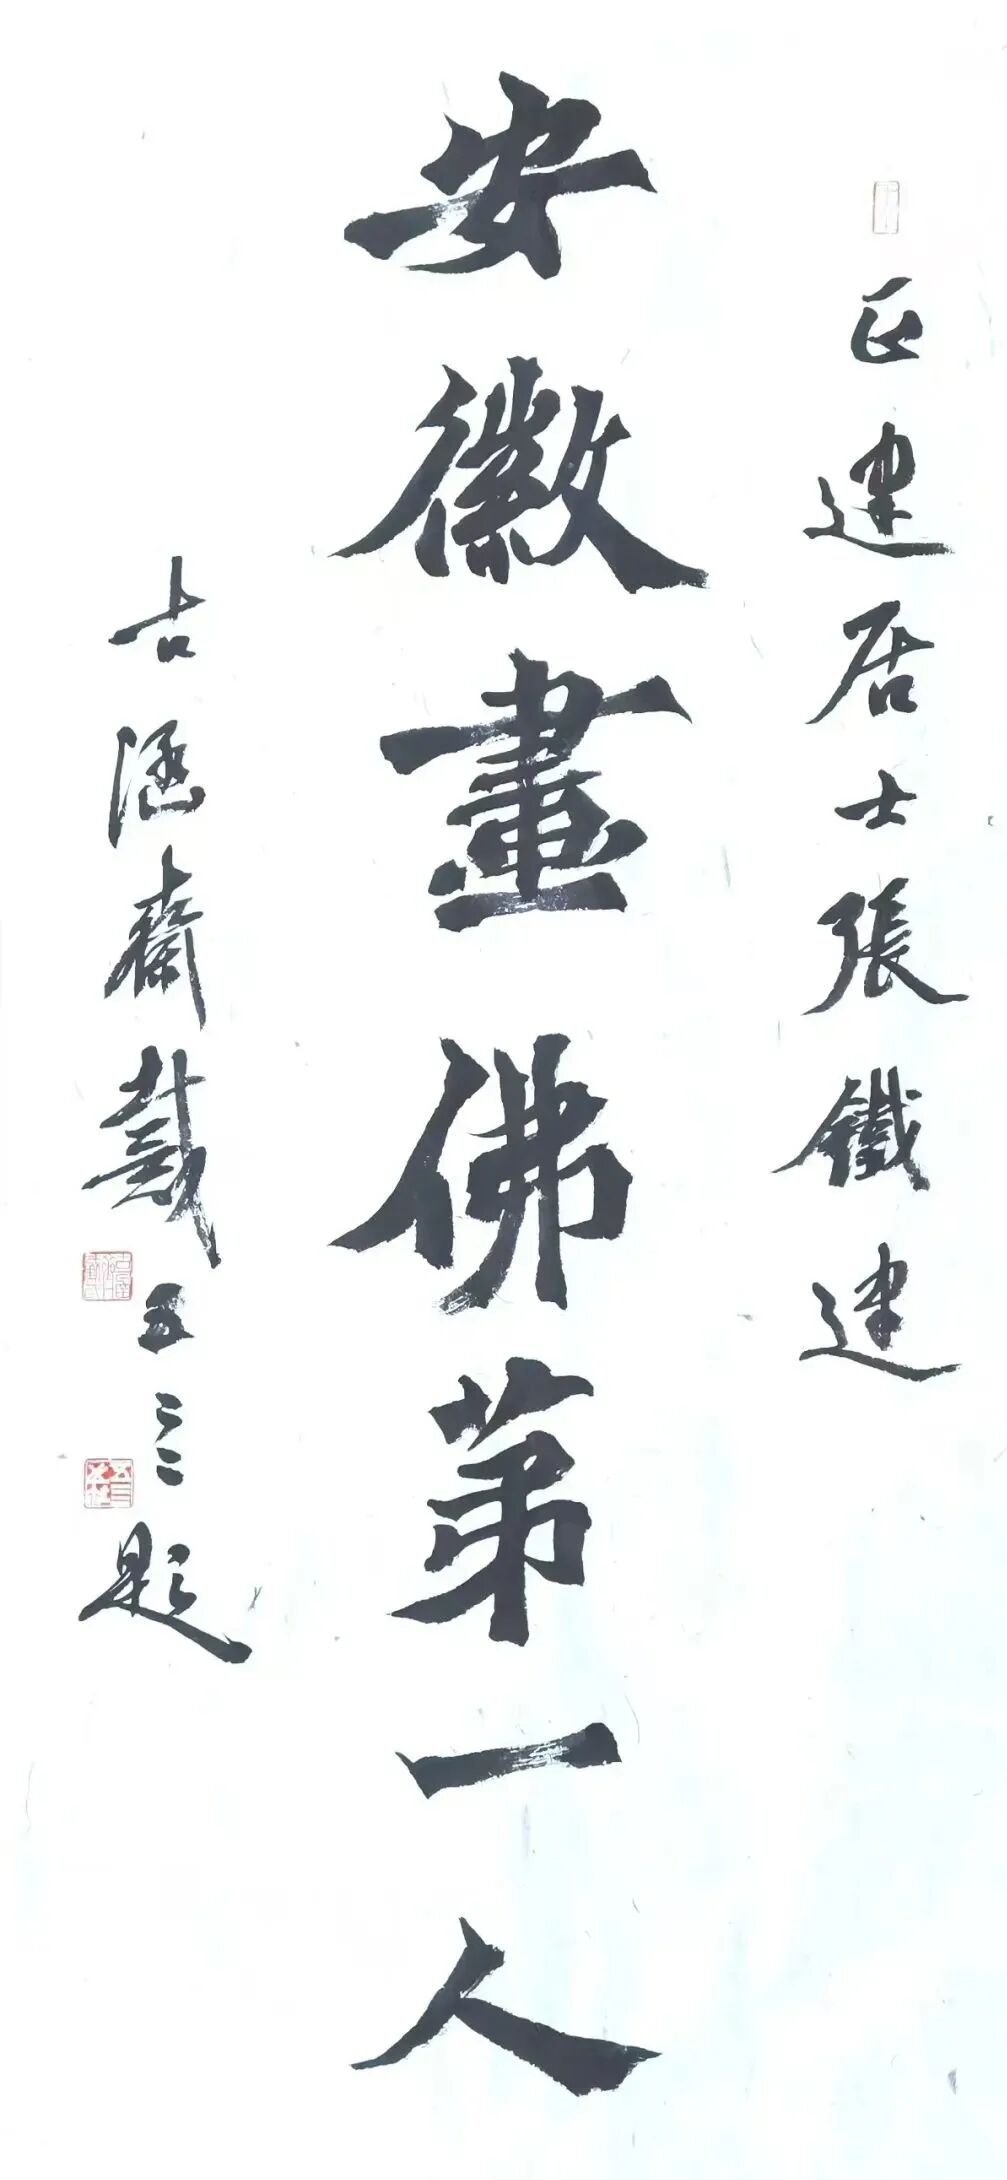 正建居士張鐵建
安徽畫佛第一人
古涵齋戴五三題